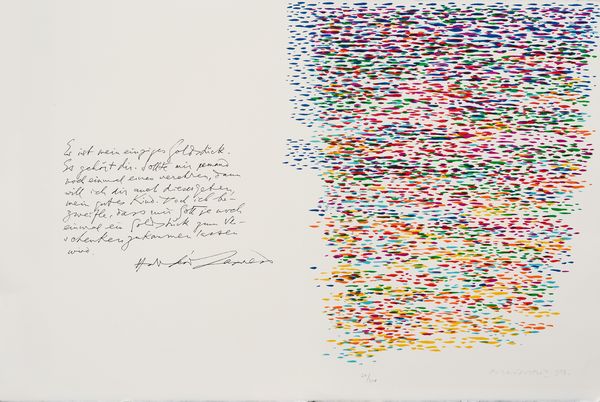 Es ist mein einziges Goldstück.
Es gehört dir. Sollte mir jemand
noch einmal eines verehren, dann
will ich dir auch dieses geben,
mein gutes Kind. Doch ich be-
zweifle, dass mir Gott je noch
einmal ein Goldstück zum Ver-
schenken zukommen lassen
wird